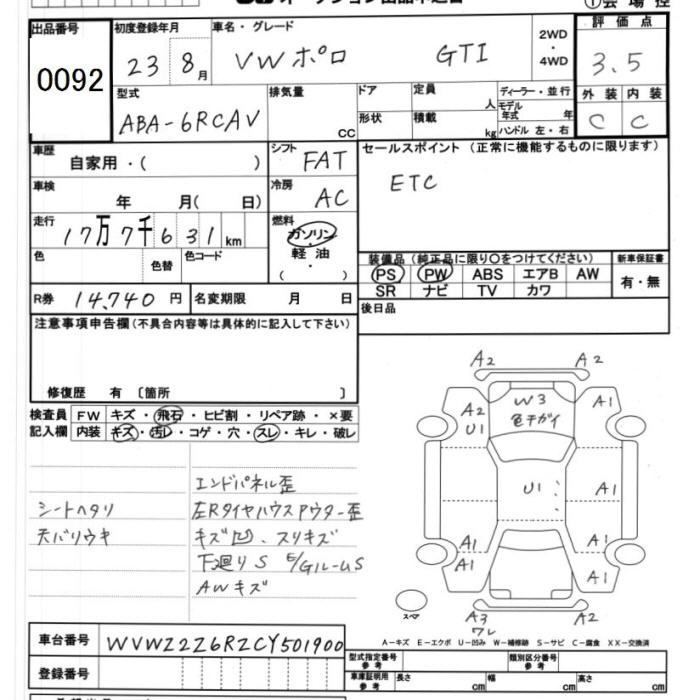 出品番号 初度登録年月 車名・グレード 2WD・4WD 評価点
0092 23 8月 VW ポロ GTI 3.5
型式 排気量 ドア 定員 ディーラー・並行 外装 内装
ABA-6RCAV cc 人 モデル年式 年 C C
形状 積載 kg ハンドル 左・右
車歴 自家用・( ) シフト FAT セールスポイント(正常に機能するものに限ります)
車検 年 月( 日) 冷房 AC ETC
走行 17万7千631km 燃料 ガソリン・軽油・( )
色 色替 色コード
装備品(純正品に限り○をつけてください) 新車保証書
PS PW ABS エアB AW 有・無
SR ナビ TV カワ
R券 14,740円 名変期限 月 日 後日品
注意事項申告欄(不具合内容等は具体的に記入して下さい)
修復歴 有 〔箇所 〕
検査員 FW キズ・飛石・ヒビ割・リペア跡・×要
記入欄 内装 キズ・汚レ・コゲ・穴・スレ・キレ・破レ
エンドパネル歪
シートヘタリ 左Rタイヤハウスアウター歪
天バリウキ キズ凹、スリキズ
下廻りS
AWキズ
A2 A2
A2 W3 A1
U1 色チガイ
U1 A1
A1 A1
A1 A1
スペア A3 A2
ワレ
A-キズ E-エクボ U-凹み W-補修跡 S-サビ C-腐食 XX-交換済
車台番号 WVWZZZ6RZCY501900
型式指定番号 参考 類別区分番号 参考
登録番号 車庫証明用 参考 長さ cm 幅 cm 高さ cm